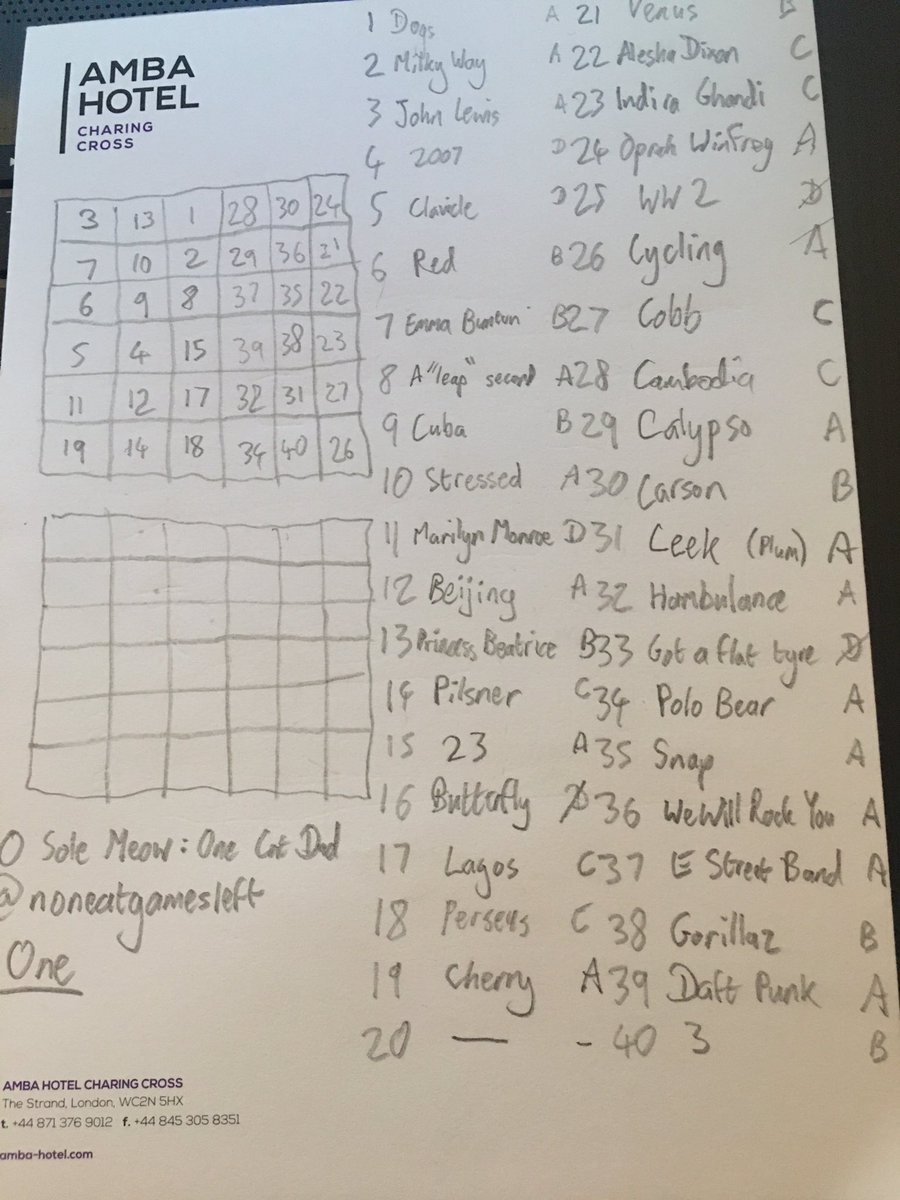 AMBA
HOTEL
CHARING
CROSS
3 13 1 28 30 24
7 10 2 29 36 21
6 9 8 37 35 22
5 4 15 39 38 23
11 12 17 32 31 27
19 14 18 34 40 26
O Sole Meow: One Cat Dad
@noneatgamesleft
One
1 Dogs A 21 Venus B
2 Milky Way A 22 Alesha Dixon C
3 John Lewis A 23 Indira Ghandi C
4 2007 D 24 Oprah Winfrey A
5 Clavicle D 25 WW2 D
6 Red B 26 Cycling A
7 Emma Bunton B 27 Cobb C
8 A "leap" second A 28 Cambodia C
9 Cuba B 29 Calypso A
10 Stressed A 30 Carson B
11 Marilyn Monroe D 31 Leek (Plum) A
12 Beijing A 32 Hambulance A
13 Princess Beatrice B 33 Got a flat tyre D
14 Pilsner C 34 Polo Bear A
15 23 A 35 Snap A
16 Butterfly D 36 We Will Rock You A
17 Lagos C 37 E Street Band A
18 Perseus C 38 Gorillaz B
19 Cherry A 39 Daft Punk A
20 — - 40 3 B
AMBA HOTEL CHARING CROSS
The Strand, London, WC2N 5HX
t. +44 871 376 9012 f. +44 845 305 8351
amba-hotel.com